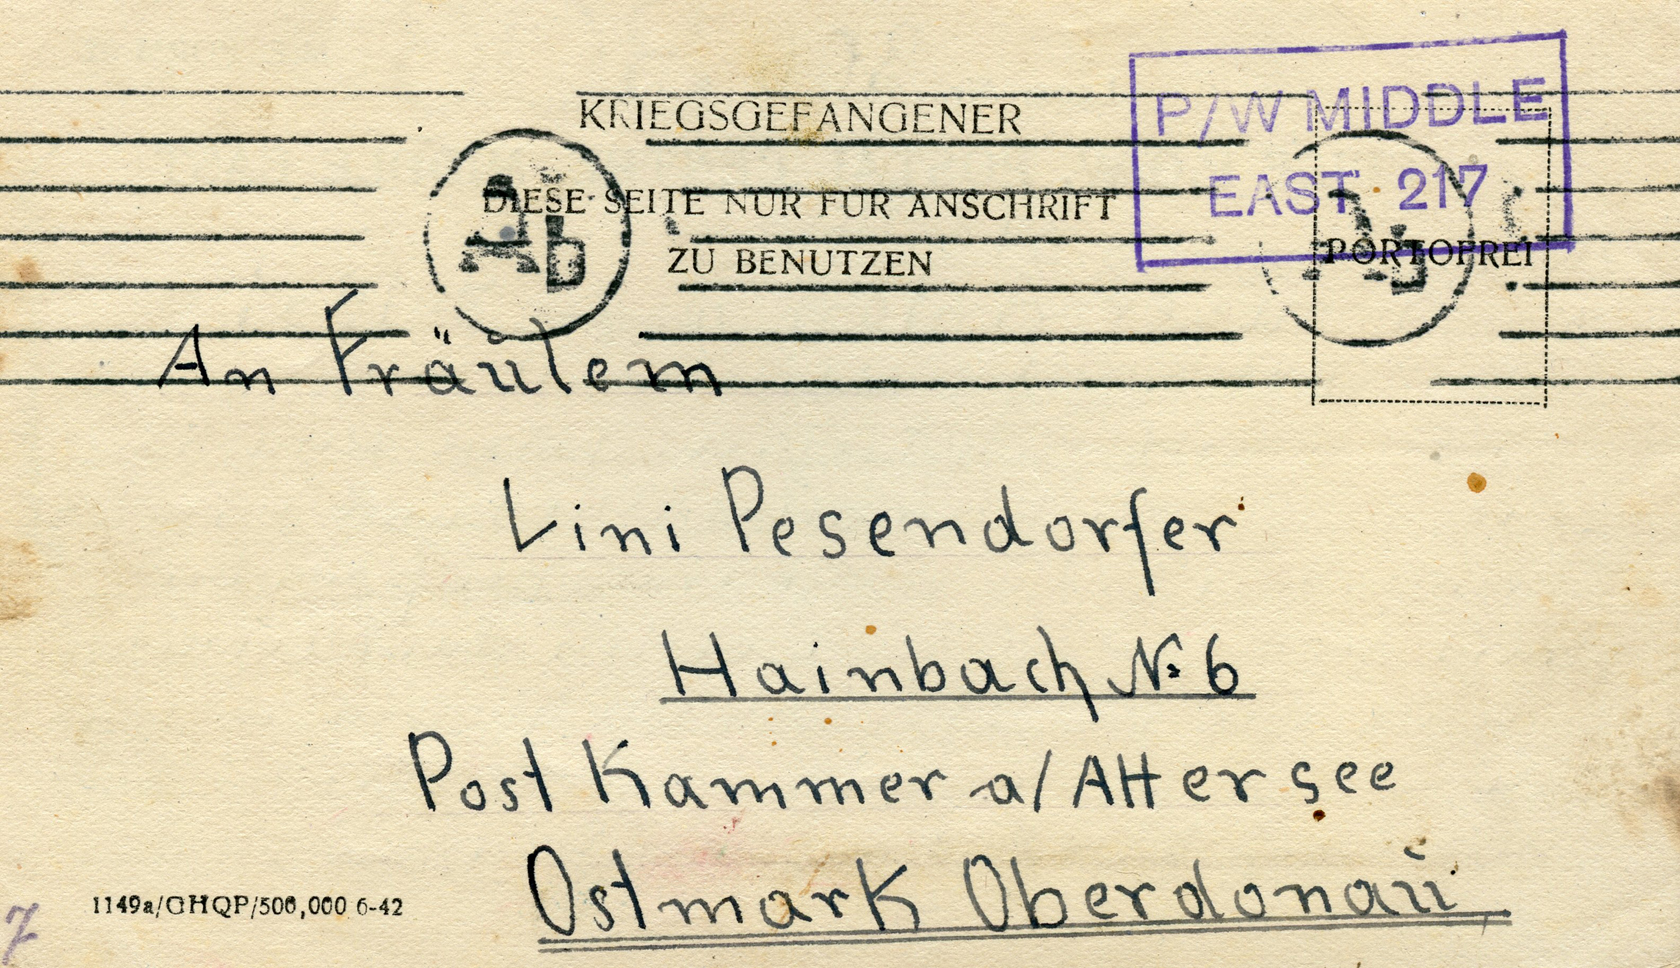 KRIEGSGEFANGENER
P/W MIDDLE
EAST 217
DIESE SEITE NUR FUR ANSCHRIFT
ZU BENUTZEN
PORTOFREI
Ab
Ab
An Fräulein
Lini Pesendorfer
Hainbach Nr 6
Post Kammer a/Attersee
Ostmark Oberdonau
1149a/GHQP/500,000 6-42
7